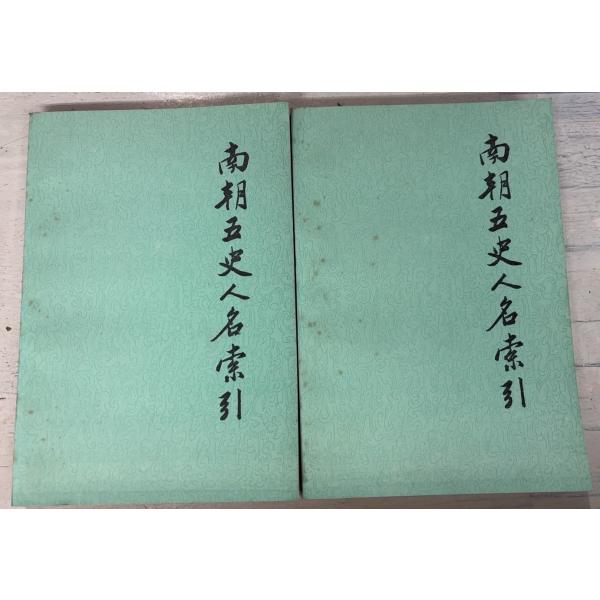 南朝五史人名索引
南朝五史人名索引